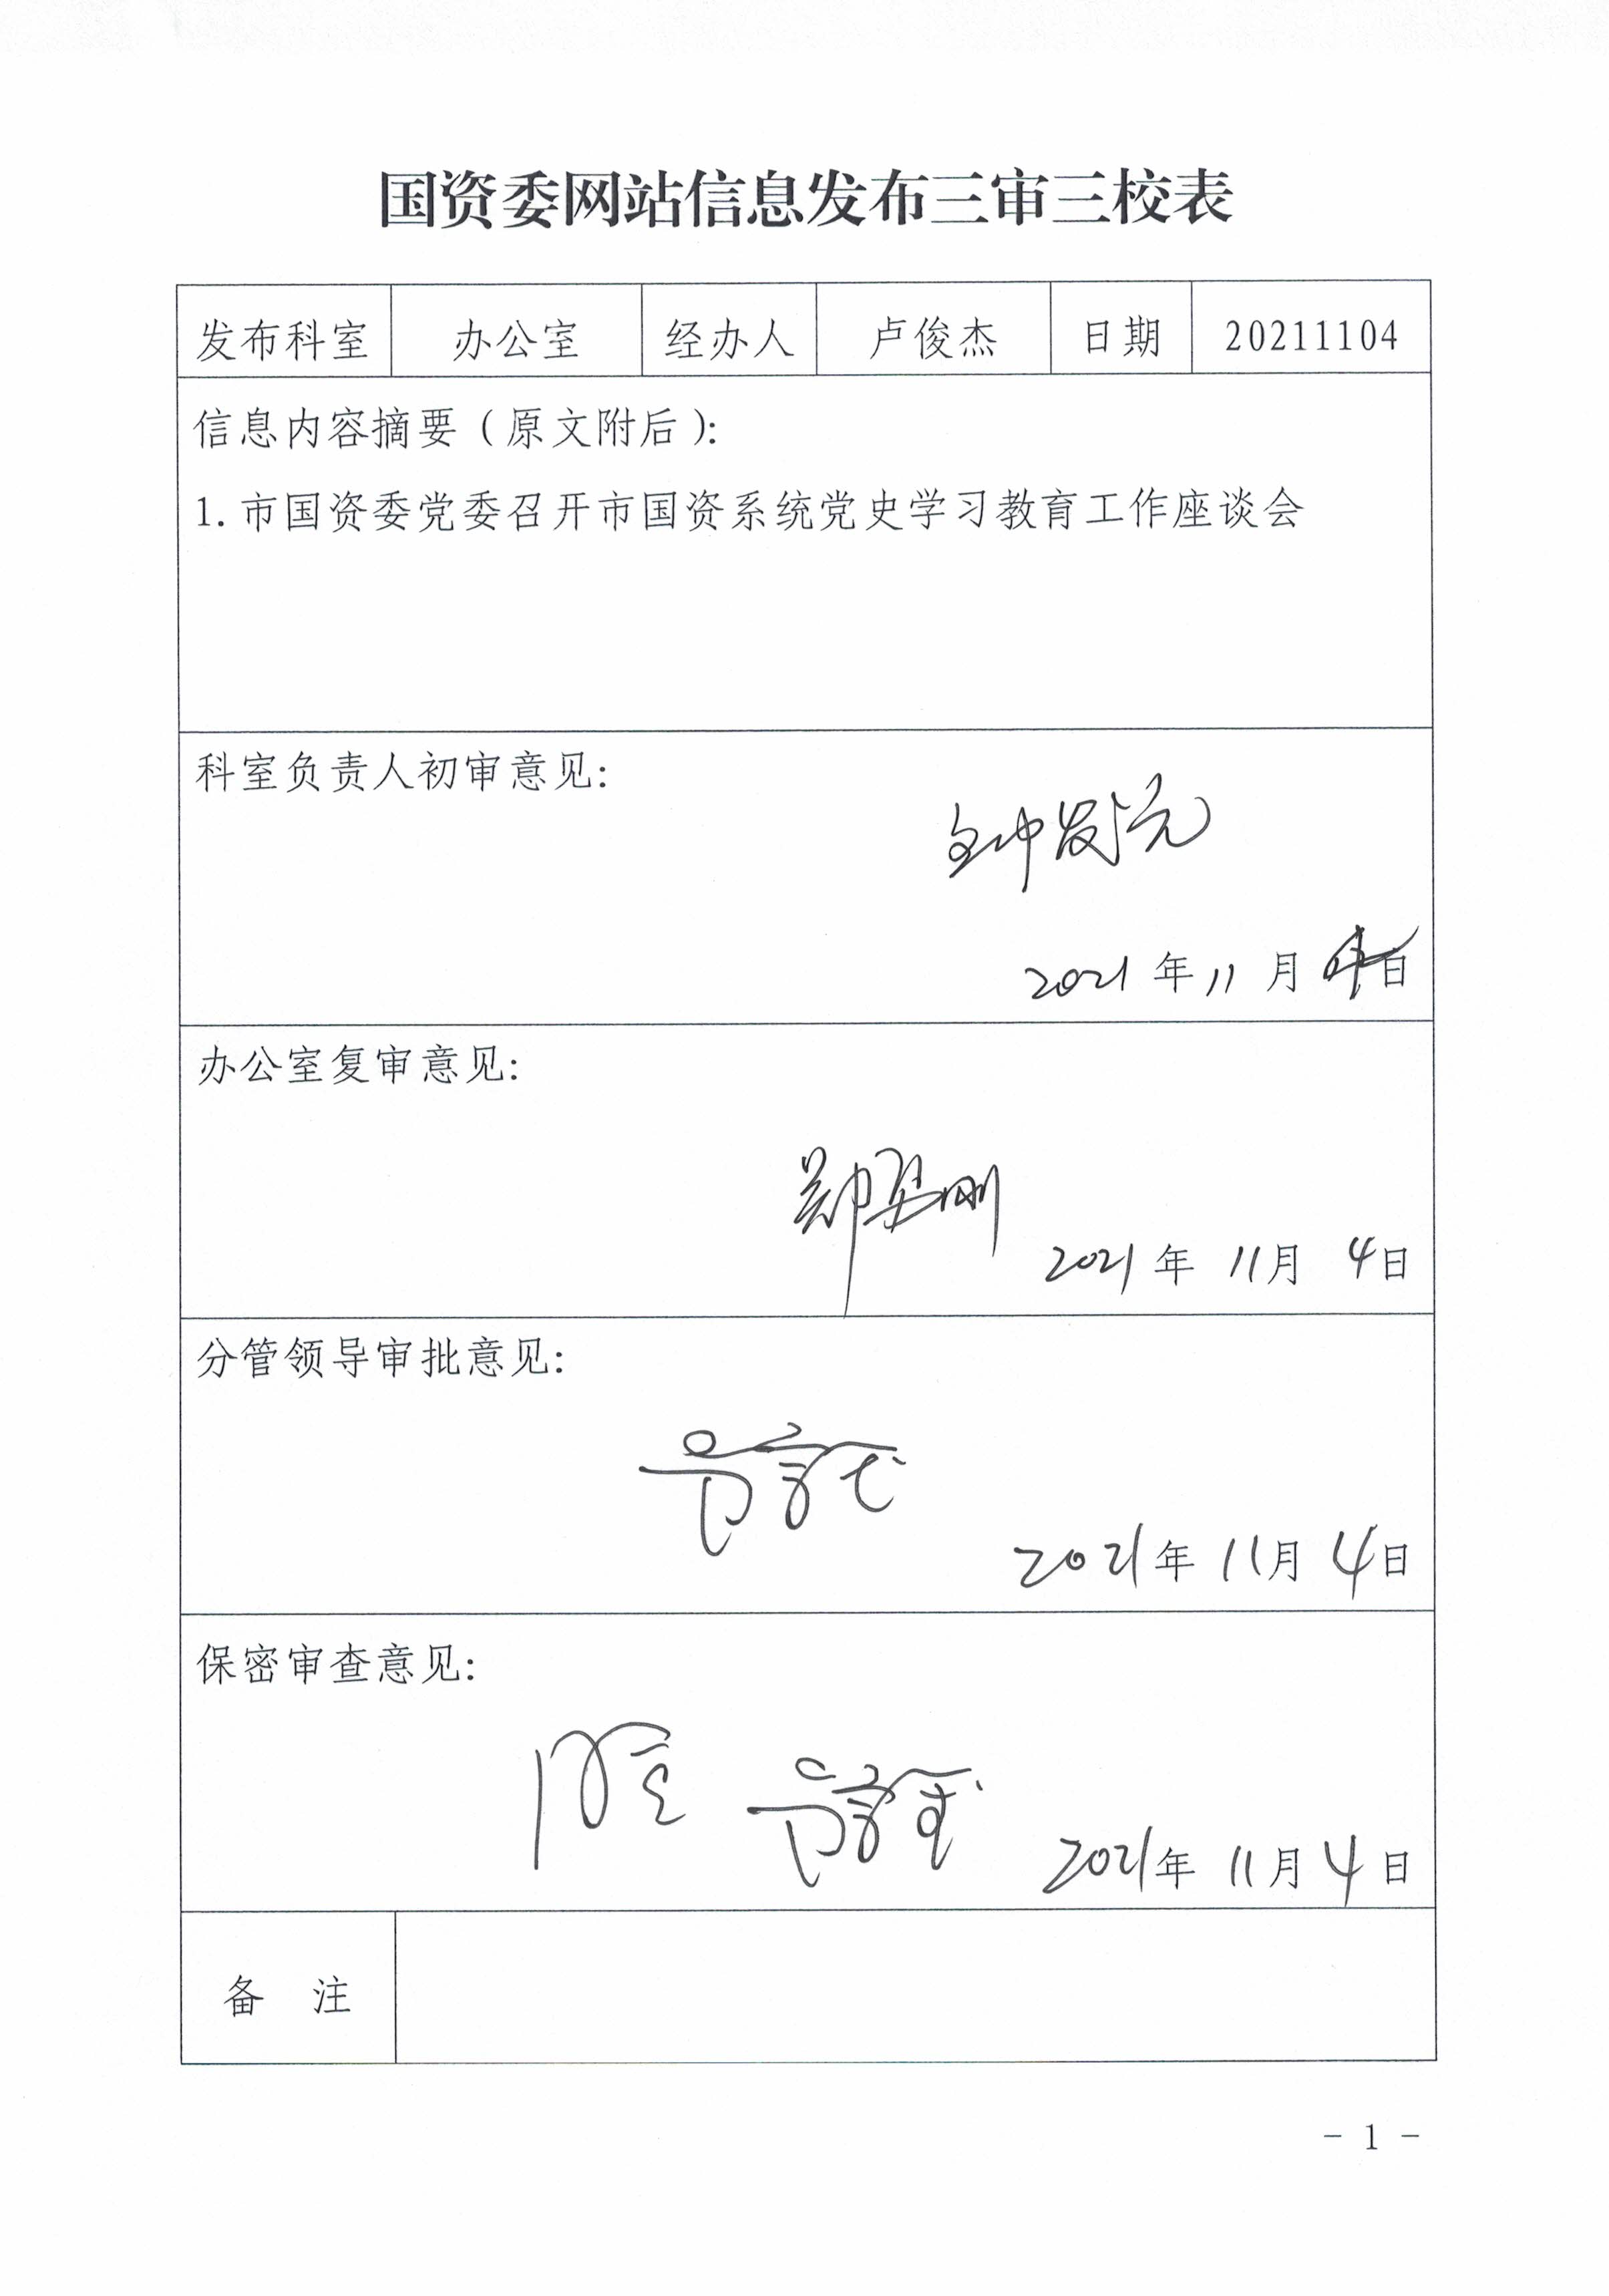 国资委网站信息发布三审三校表
发布科室 办公室 经办人 卢俊杰 日期 20211104
信息内容摘要（原文附后）:
1. 市国资委党委召开市国资系统党史学习教育工作座谈会
科室负责人初审意见:
钟发元
2021 年 11 月 4 日
办公室复审意见:
2021 年 11 月 4 日
分管领导审批意见:
2021 年 11 月 4 日
保密审查意见:
2021 年 11 月 4 日
备 注
- 1 -